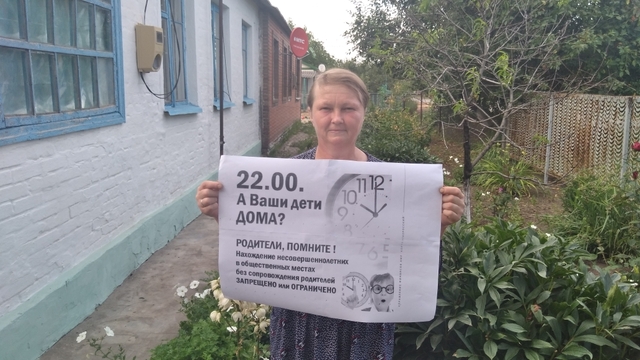 22.00.
А Ваши дети
ДОМА?
РОДИТЕЛИ, ПОМНИТЕ !
Нахождение несовершеннолетних
в общественных местах
без сопровождения родителей
ЗАПРЕЩЕНО или ОГРАНИЧЕНО
12
11
10
9
8
7
6